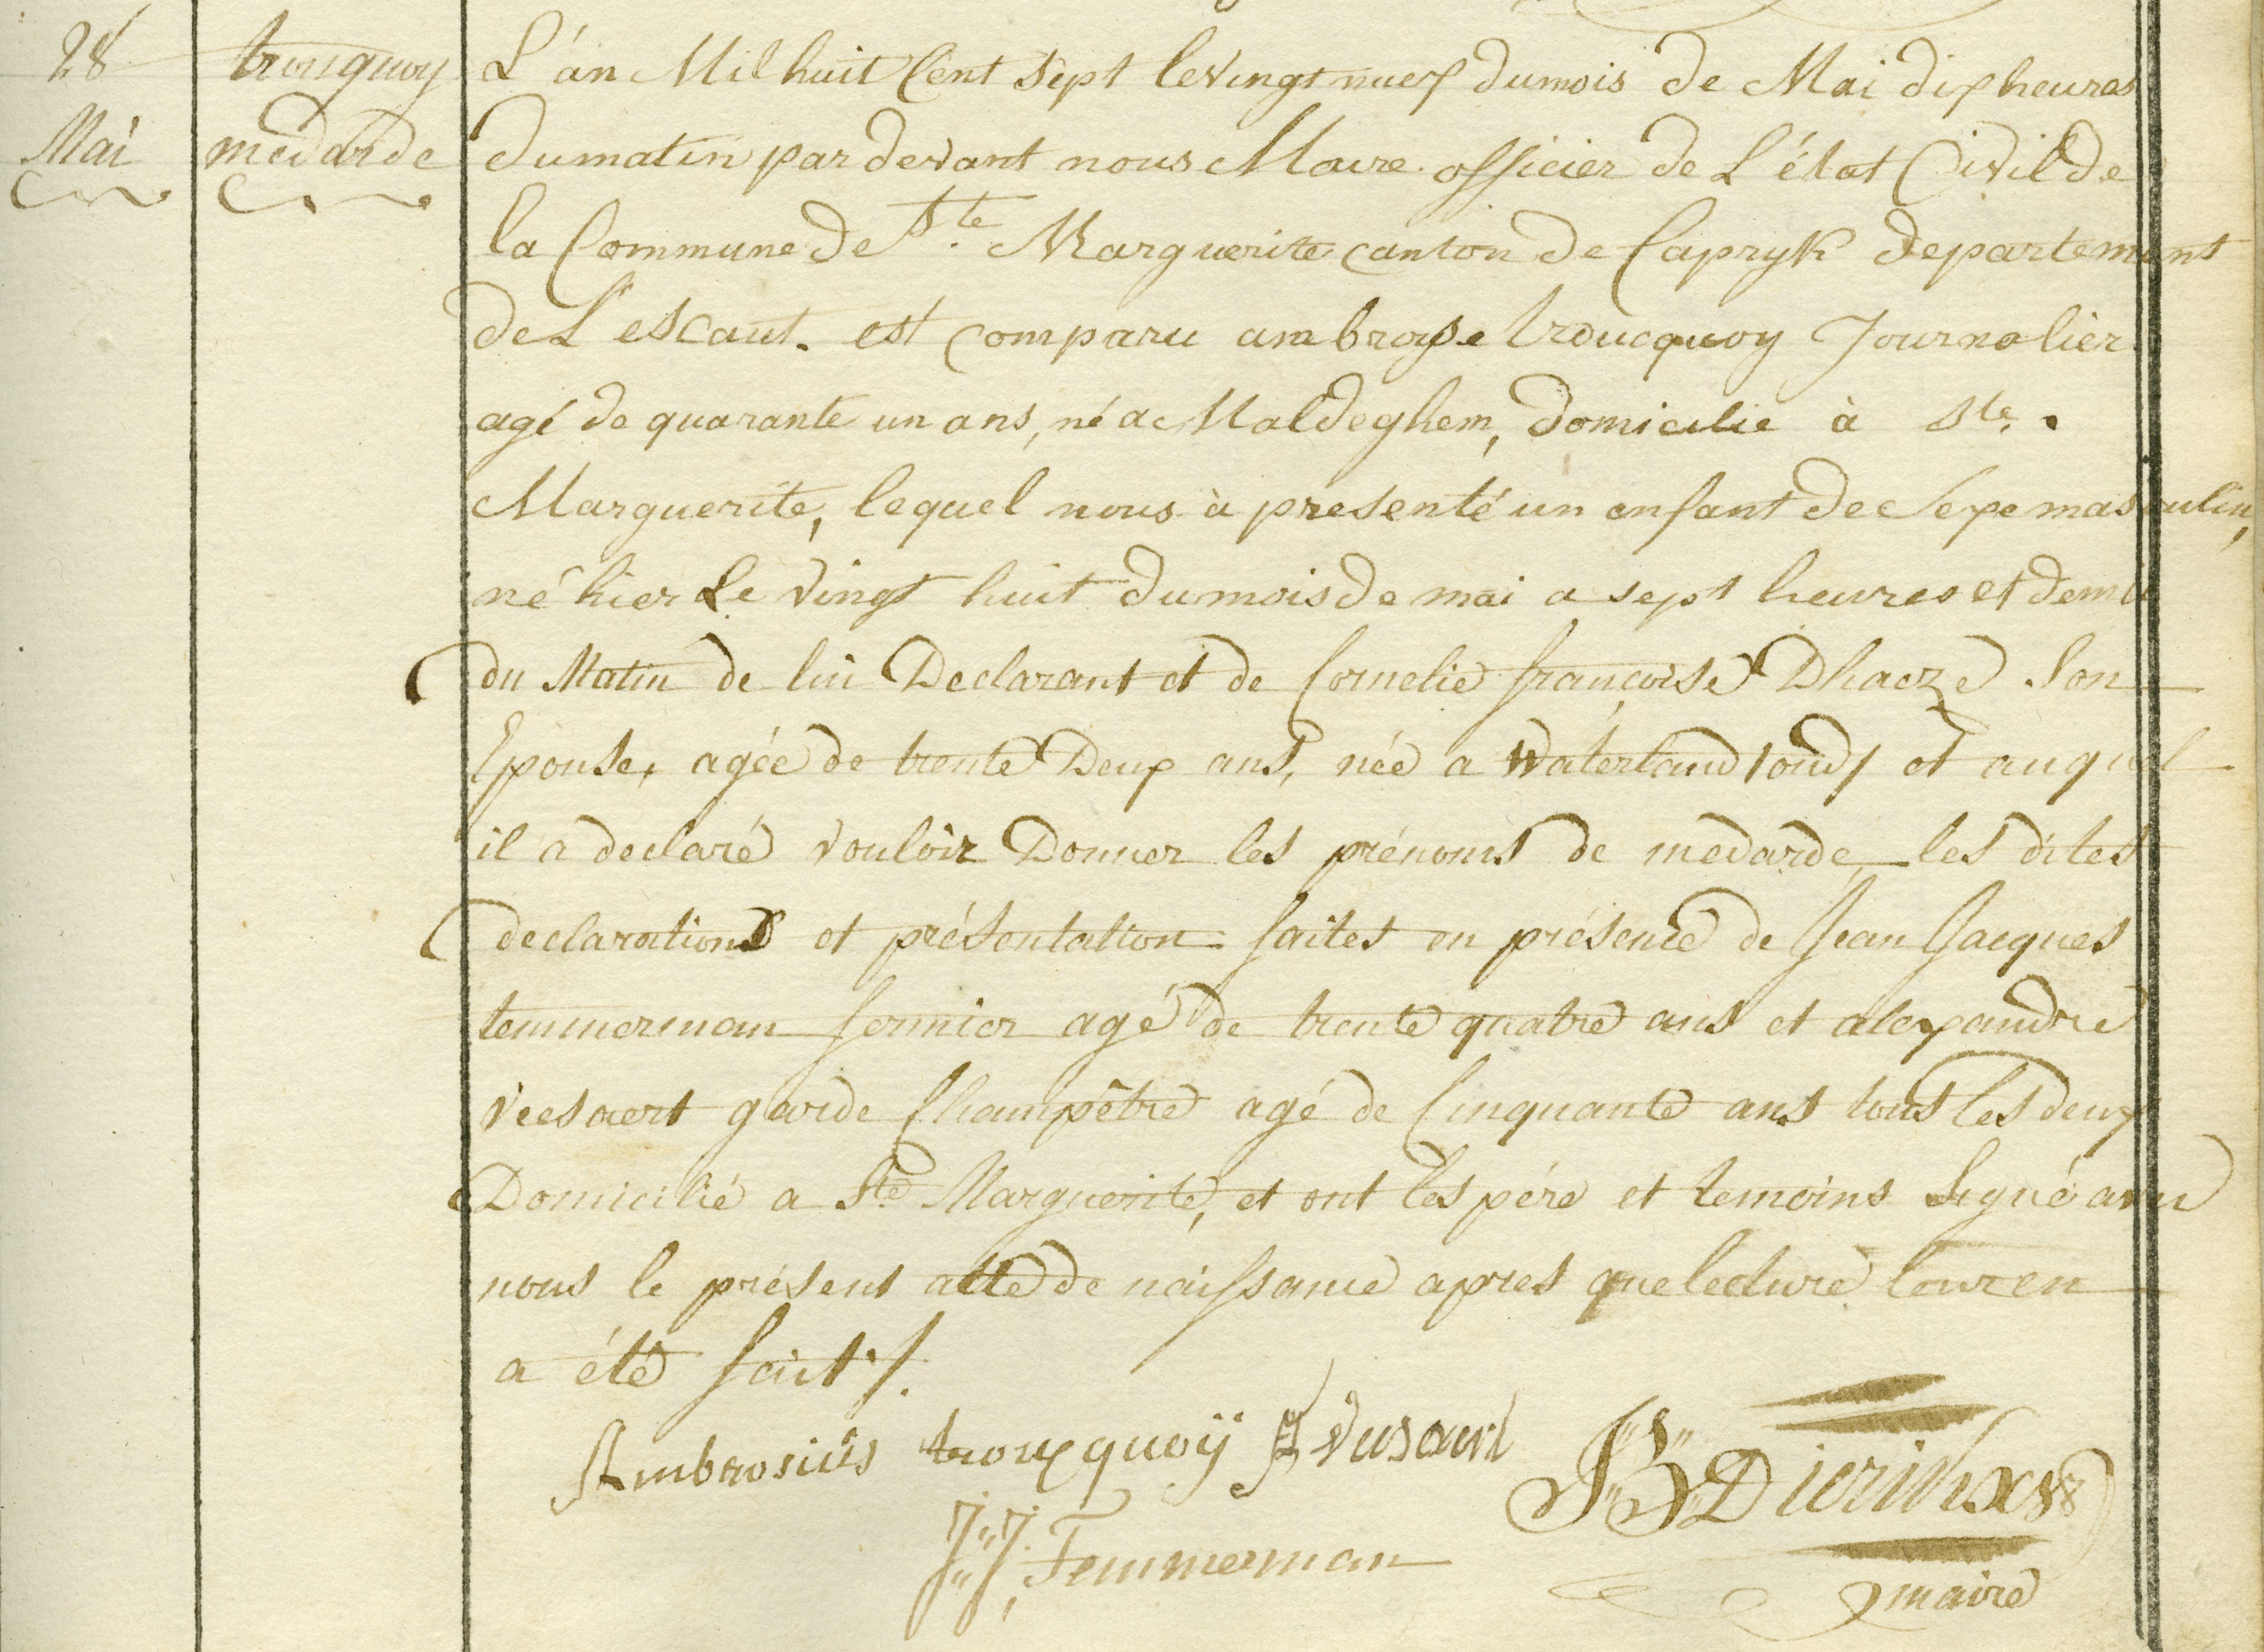 28
Mai
trouquoy
medarde
L'án Mil huit Cent sept le vingt nuef du mois de Mai dix heures
du matin par devant nous Maire officier de L'état Civil de
la Commune de Ste Marguerite canton de Capryk departement
de L'escaut. est comparu ambroise troucquoy Journalier
agé de quarante un ans, né a Maldeghem, Domicilie à Ste.
Marguerite, lequel nous à presenté un enfant de Sexe masculin,
né hier Le vingt huit du mois de mai a sept heures et demie
du Matin de lui Declarant et de Cornelie françoise Dhaeze Son
Epouse, agée de trente Deux ans, née a Waterland oud, et auquel
il a declaré vouloir Donner les prénoms de medarde, les dites
declarations et présentation faites en présence de Jean Jacques
temmerman fermier agé de trente quatre ans et alexandre
veesaert garde Champêtre agé de Cinquante ans tous les deux
Domicilié a Ste Marguerite, et ont les pére et temoins Signé avec
nous le présent acte de naissance apres que lecture leur en
a été fait /.
Ambrosius troucquoÿ
JBDierinxs
J:J: Temmerman
maire